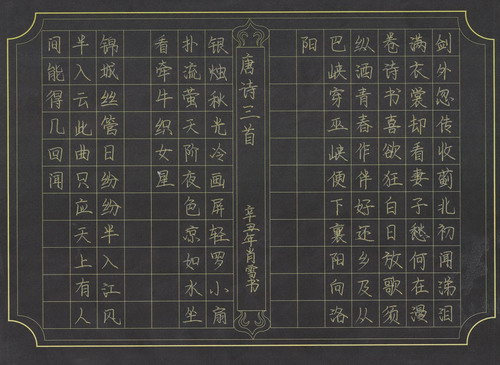 剑外忽传收蓟北初闻涕泪
满衣裳却看妻子愁何在漫
卷诗书喜欲狂白日放歌须
纵酒青春作伴好还乡及从
巴峡穿巫峡便下襄阳向洛
阳
唐诗三首
辛丑年肖雪书
银烛秋光冷画屏轻罗小扇
扑流萤天阶夜色凉如水坐
看牵牛织女星
锦城丝管日纷纷半入江风
半入云此曲只应天上有人
间能得几回闻